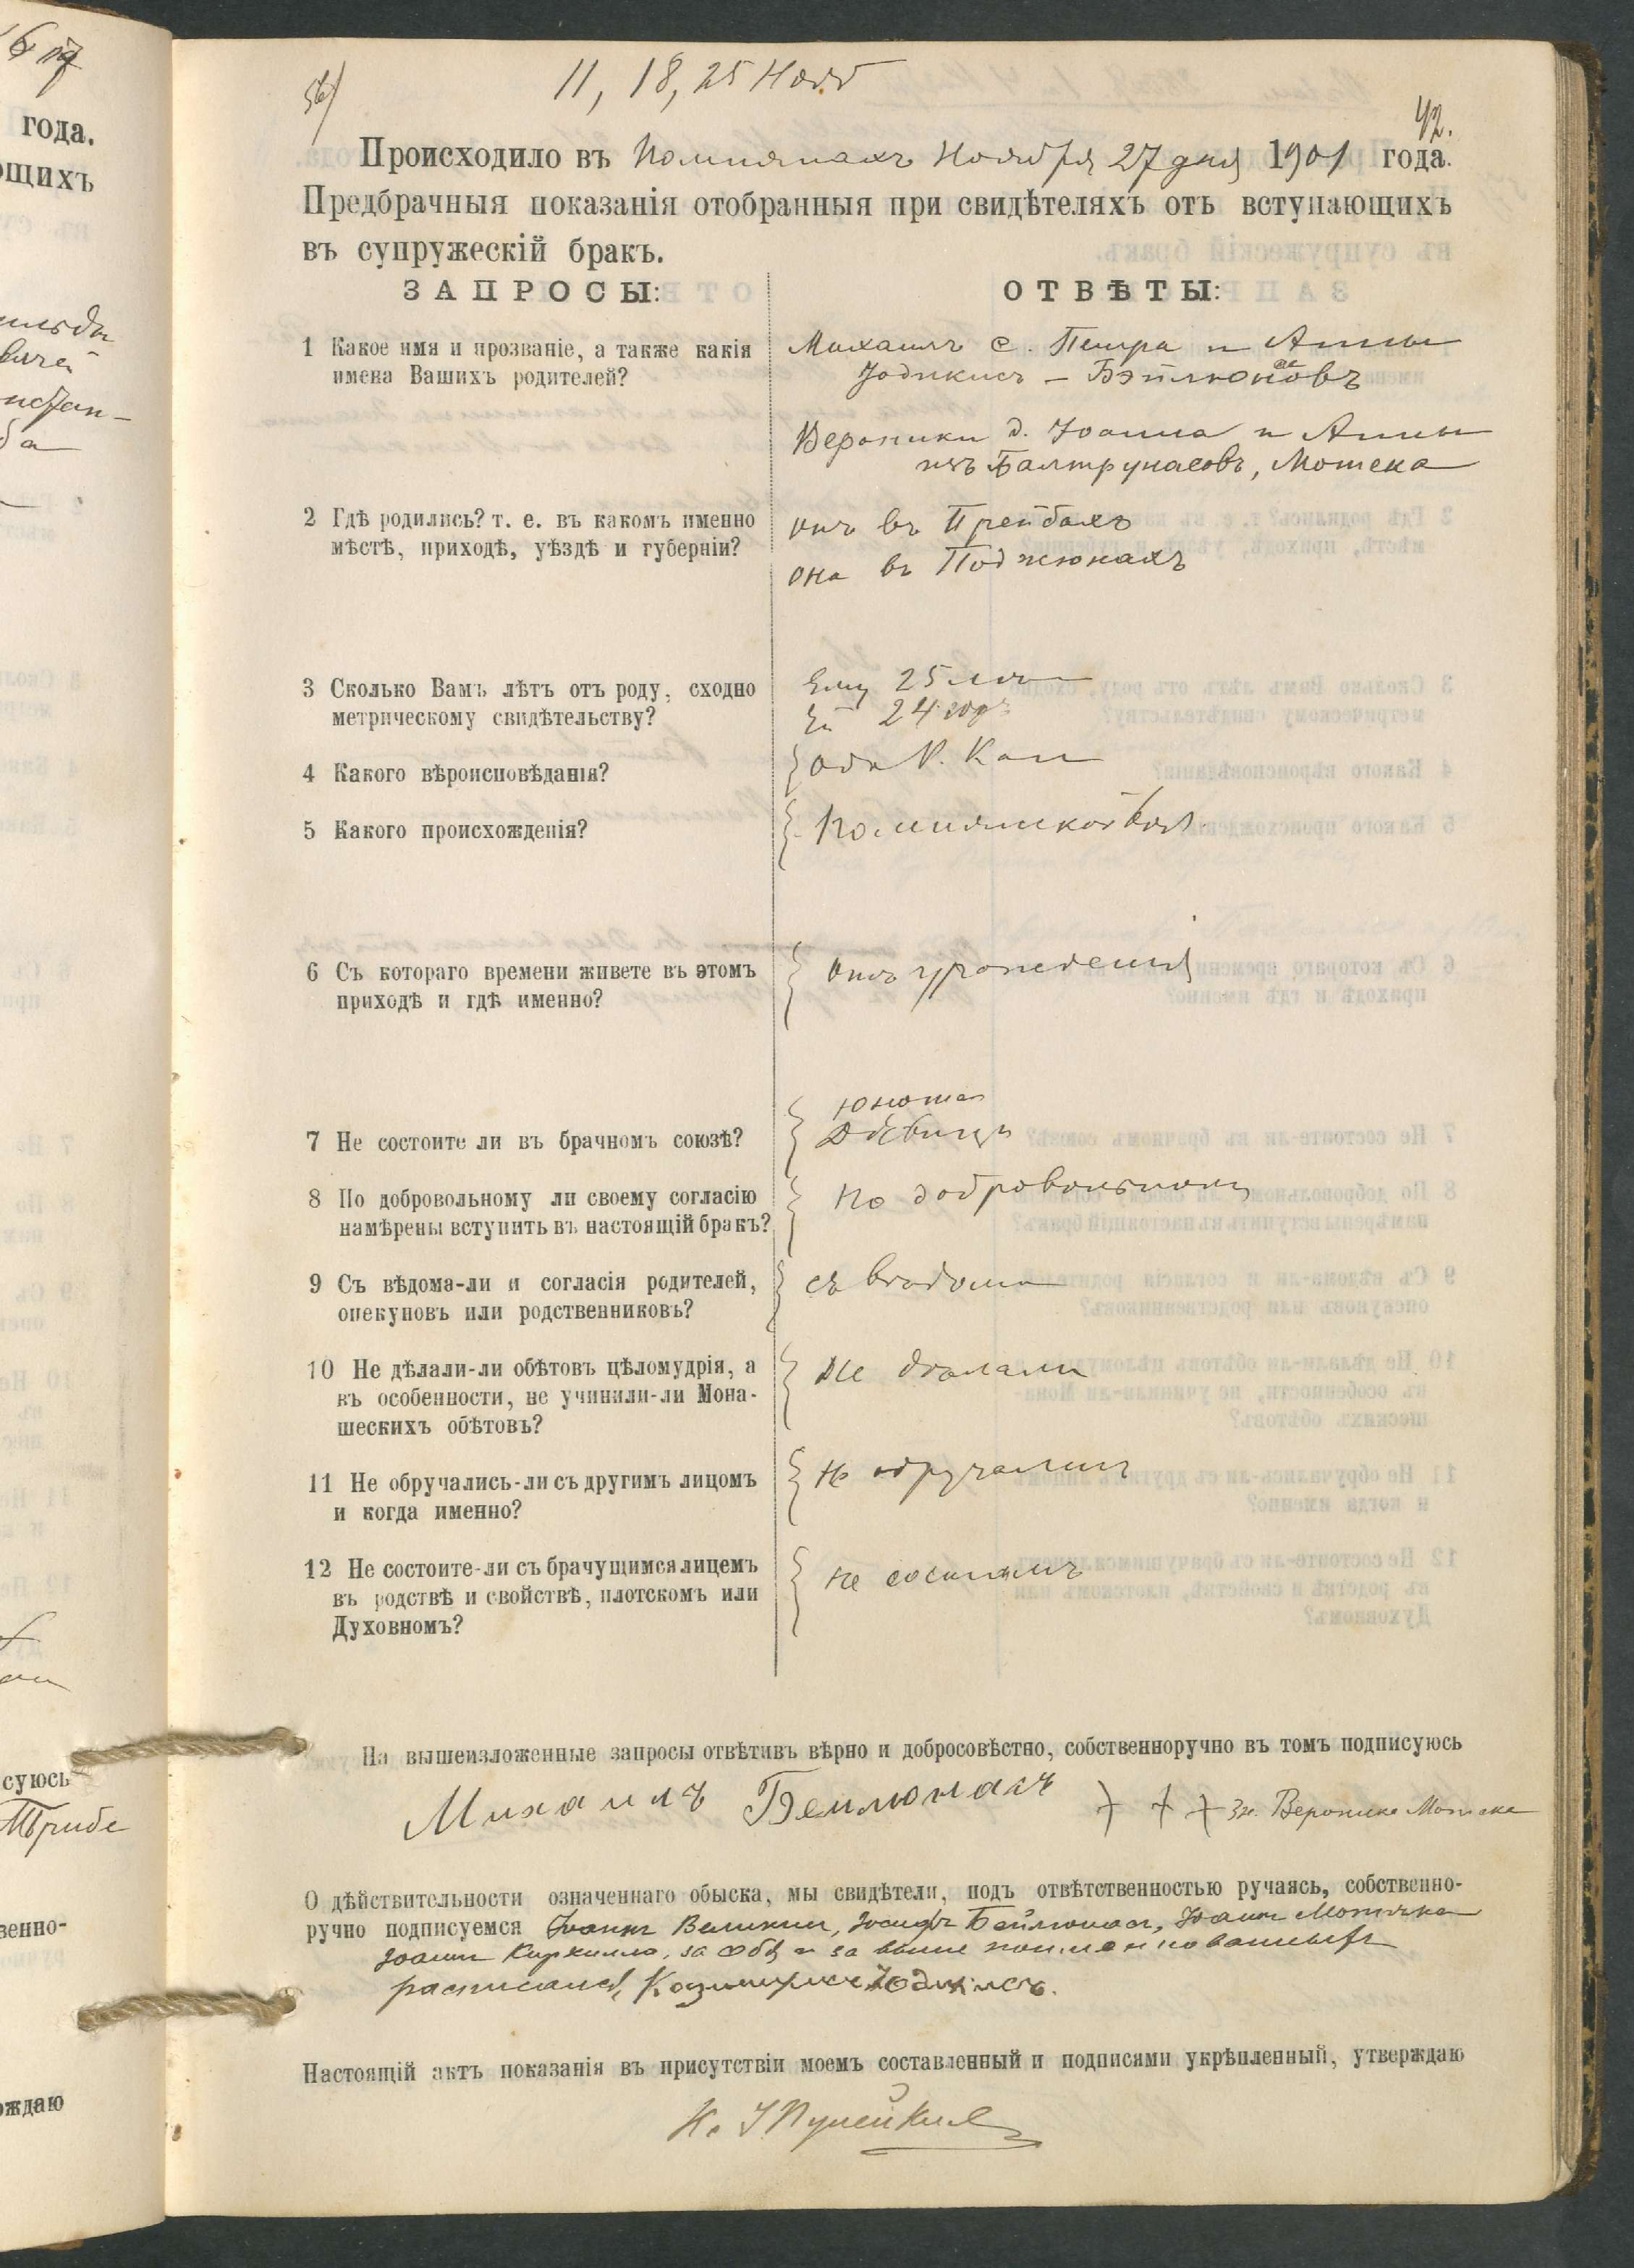 11, 18, 25 Нояб
42.
Происходило въ Ноября 27 дня 1901 года.
Предбрачныя показанія отобранныя при свидѣтеляхъ отъ вступающихъ
въ супружескій бракъ.
ЗАПРОСЫ:
ОТВѢТЫ:
1 Какое имя и прозваніе, а также какія
имена Вашихъ родителей?
Михаилъ с. Петра и Анны
Вероники д. Іоанна и Анны
изъ Балтрунасовъ, Мотека
2 Гдѣ родились? т. е. въ какомъ именно
мѣстѣ, приходѣ, уѣздѣ и губерніи?
онъ въ Прейбахъ
она въ Поджюнахъ
3 Сколько Вамъ лѣтъ отъ роду, сходно
метрическому свидѣтельству?
Ему 25 лѣтъ
Ей 24 годъ
4 Какого вѣроисповѣданія?
оба Р. Кат
5 Какого происхожденія?
6 Съ котораго времени живете въ этомъ
приходѣ и гдѣ именно?
рожденія
7 Не состоите ли въ брачномъ союзѣ?
юноша
дѣвица
8 По добровольному ли своему согласію
намѣрены вступить въ настоящій бракъ?
по добровольному
9 Съ вѣдома-ли и согласія родителей,
опекуновъ или родственниковъ?
съ вѣдома
10 Не дѣлали-ли обѣтовъ цѣломудрія, а
въ особенности, не учинили-ли Мона-
шескихъ обѣтовъ?
Не дѣлали
11 Не обручались-ли съ другимъ лицомъ
и когда именно?
не обручались
12 Не состоите-ли съ брачущимся лицемъ
въ родствѣ и свойствѣ, плотскомъ или
Духовномъ?
Не состоимъ
На вышеизложенные запросы отвѣтивъ вѣрно и добросовѣстно, собственноручно въ томъ подписуюсь
Михаилъ Бейлюнасъ + + + Зн. Вероника Мотека
О дѣйствительности означеннаго обыска, мы свидѣтели, подъ отвѣтственностью ручаясь, собственно-
ручно подписуемся Іоаннъ Іосифъ Бейлюнасъ, Іоаннъ
Іоаннъ Киркилло, за себя и за выше поименнованныхъ
расписался Казимиръ
Настоящій актъ показанія въ присутствіи моемъ составленный и подписями укрѣпленный, утверждаю